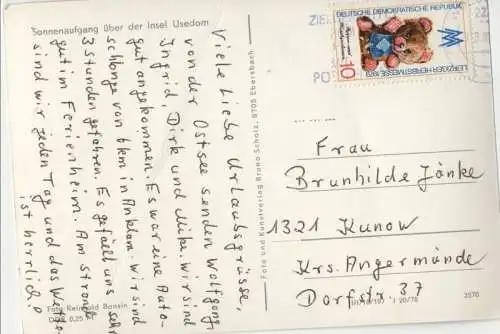 Sonnenaufgang über der Insel Usedom
Viele liebe Urlaubsgrüsse,
von der Ostsee senden Wolfgang,
Ingrid, Dirk und Mike. Wir sind
gut angekommen. Es war eine Auto-
schlange von 6km in Anklam. Wir sind
3 Stunden gefahren. Es gefällt uns sehr
gut im Ferienheim. Am Strand
sind wir jeden Tag und das Wetter
ist herrlich!
Foto Reinhold Bonsin
0,25
Foto und Kunstverlag Bruno Scholz, 8705 Ebersbach
DEUTSCHE DEMOKRATISCHE REPUBLIK
LEIPZIGER HERBSTMESSE 1979
10
Frau
Brunhilde Jänke
1321 Kunow
Krs. Angermünde
Dorfstr 37
3570